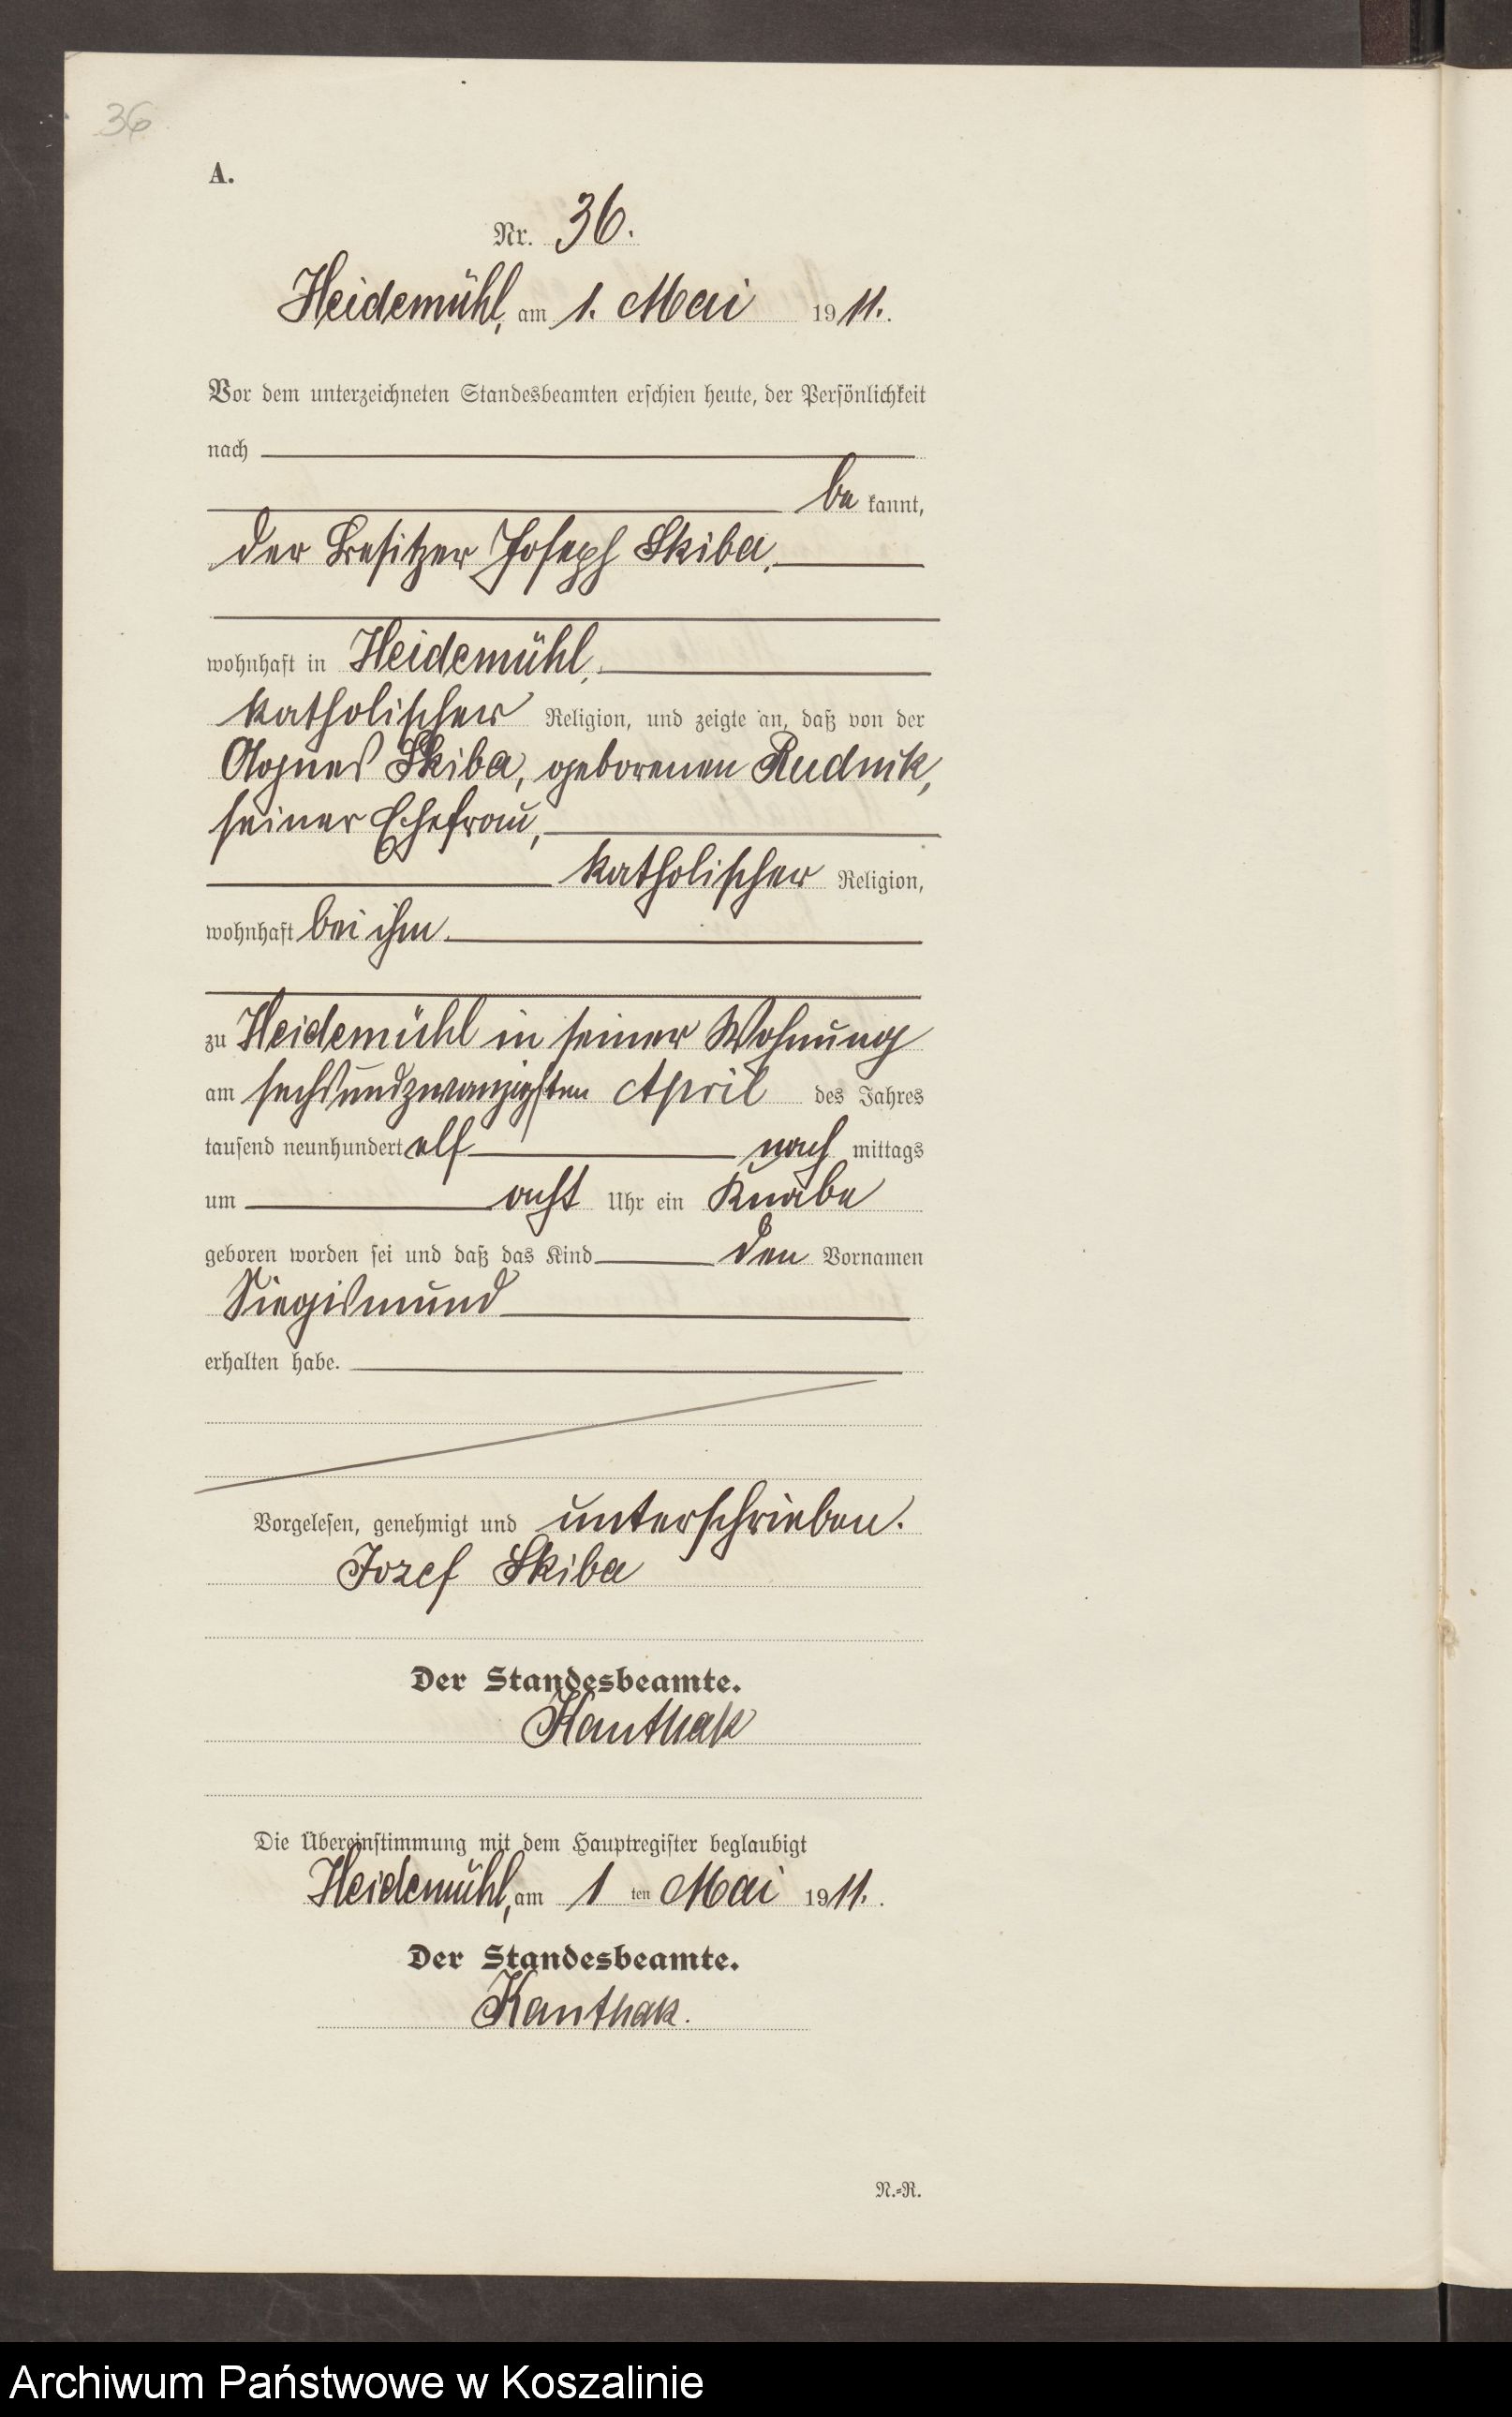 36
A.
Nr. 36.
Heidemühl, am 1. Mai 1911.
Vor dem unterzeichneten Standesbeamten erschien heute, der Persönlichkeit
nach
be kannt,
der Besitzer Joseph Skiba,
wohnhaft in Heidemühl,
katholischer Religion, und zeigte an, daß von der
Agnes Skiba, geborenen Rudnik,
seiner Ehefrau,
katholischer Religion,
wohnhaft bei ihm.
zu Heidemühl in seiner Wohnung
am sechsundzwanzigsten April des Jahres
tausend neunhundert elf nach mittags
um acht Uhr ein Knabe
geboren worden sei und daß das Kind den Vornamen
Siegismund
erhalten habe.
Vorgelesen, genehmigt und unterschrieben.
Jozef Skiba
Der Standesbeamte.
Kanthak
Die Übereinstimmung mit dem Hauptregister beglaubigt
Heidemühl, am 1 ten Mai 1911.
Der Standesbeamte.
Kanthak.
N.-R.
Archiwum Państwowe w Koszalinie